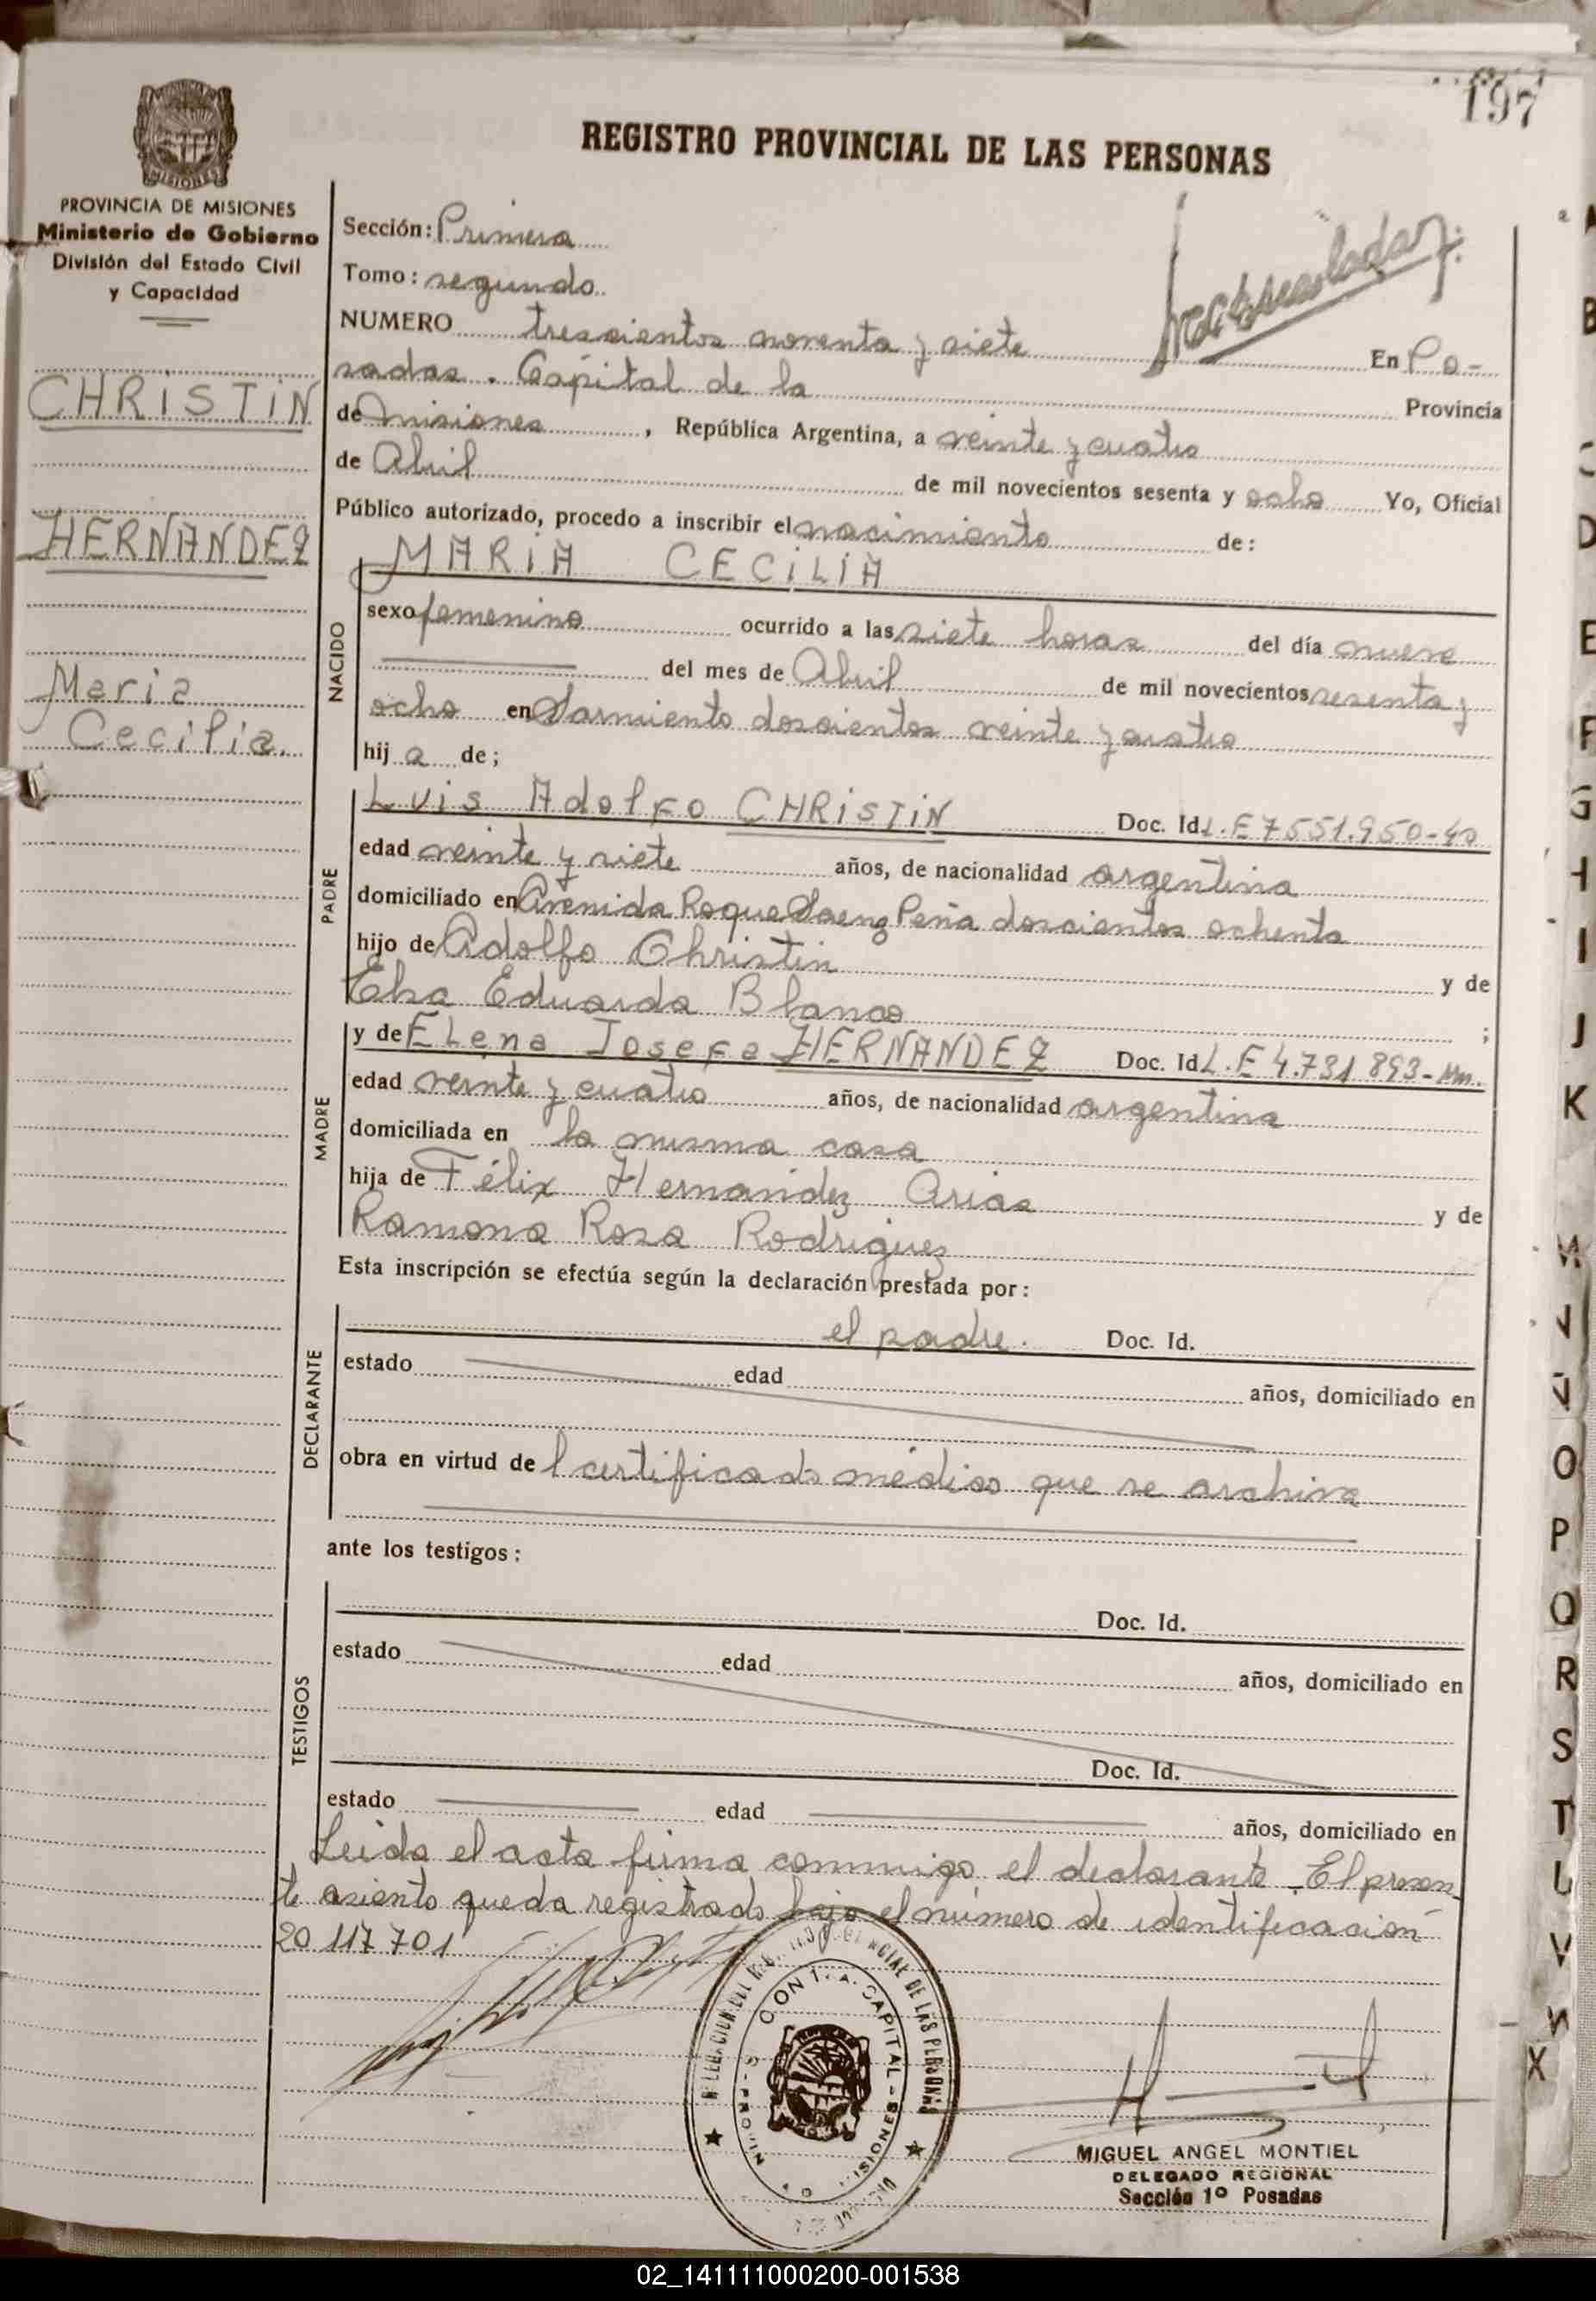 197
REGISTRO PROVINCIAL DE LAS PERSONAS
MISIONES
PROVINCIA DE MISIONES
Ministerio de Gobierno
División del Estado Civil
y Capacidad
CHRISTIN
HERNANDEZ
Maria
Cecilia.
Sección: Primera
Tomo: segundo
NUMERO trescientos noventa y siete En Po-
sadas. Capital de la Provincia
de misiones, República Argentina, a veinte y cuatro
de Abril de mil novecientos sesenta y ocho Yo, Oficial
Público autorizado, procedo a inscribir el nacimiento de:
MARIA CECILIA
NACIDO
sexo femenino ocurrido a las siete horas del día nueve
del mes de Abril de mil novecientos sesenta y
ocho en Sarmiento doscientos veinte y cuatro
hij a de;
PADRE
Luis Adolfo CHRISTIN Doc. Id. L.E 7551.950-
edad veinte y siete años, de nacionalidad argentina
domiciliado en Avenida Roque Saenz Peña doscientos ochenta
hijo de Adolfo Christin y de
Elsa Eduarda Blanco ;
MADRE
y de Elena Josefa HERNANDEZ Doc. Id L.E 4.731893-
edad veinte y cuatro años, de nacionalidad argentina
domiciliada en la misma casa
hija de Félix Hernandez Arias y de
Ramona Rosa Rodriguez
Esta inscripción se efectúa según la declaración prestada por:
DECLARANTE
el padre. Doc. Id.
estado edad años, domiciliado en
obra en virtud de l certificado médico que se archiva
ante los testigos:
TESTIGOS
Doc. Id.
estado edad años, domiciliado en
Doc. Id.
estado edad años, domiciliado en
Leida el acta firma conmigo el declarante. El presen-
te asiento queda registrado bajo el número de identificación
20 117 701
DE LAS PERSONAS
CAPITAL
MIGUEL ANGEL MONTIEL
DELEGADO REGIONAL
Sección 1º Posadas
B
D
E
F
G
H
I
J
K
M
N
Ñ
O
P
Q
R
S
T
U
V
W
X
02_141111000200-001538